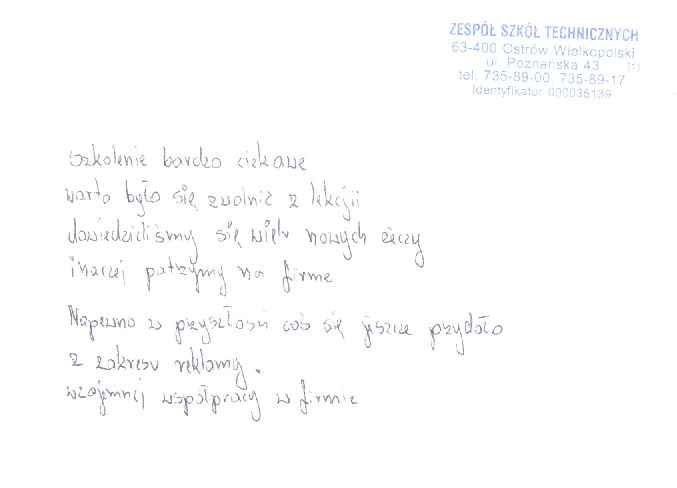 ZESPÓŁ SZKÓŁ TECHNICZNYCH
63-400 Ostrów Wielkopolski
ul. Poznańska 43 (1)
tel. 735-89-00, 735-89-17
Identyfikator 000035139
szkolenie bardzo ciekawe
warto było się zwolnić z lekcjii
dowiedzieliśmy się wielu nowych żeczy
inaczej patrzymy na firme
Napewno w przyszłości coś się jeszcze przydało
z zakresu reklamy.
wzajemnej współpracy w firmie